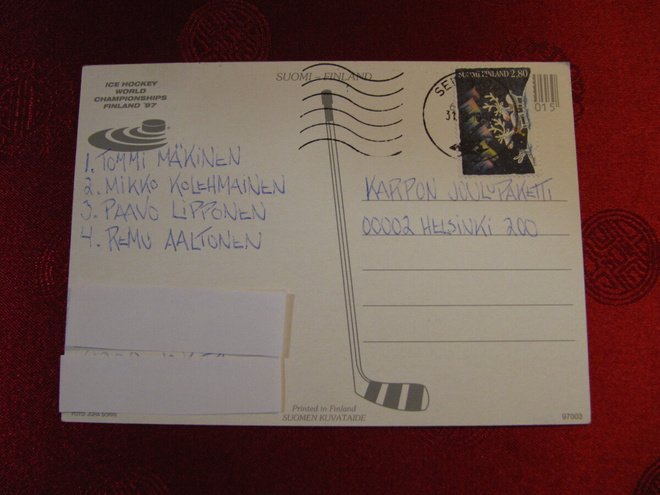 ICE HOCKEY
WORLD
CHAMPIONSHIPS
FINLAND '97
SUOMI – FINLAND
SUOMI FINLAND 2,80
015
31
1. TOMMI MÄKINEN
2. MIKKO KOLEHMAINEN
3. PAAVO LIPPONEN
4. REMU AALTONEN
KARPON JOULUPAKETTI
00002 HELSINKI 200
Printed in Finland
SUOMEN KUVATAIDE
97003